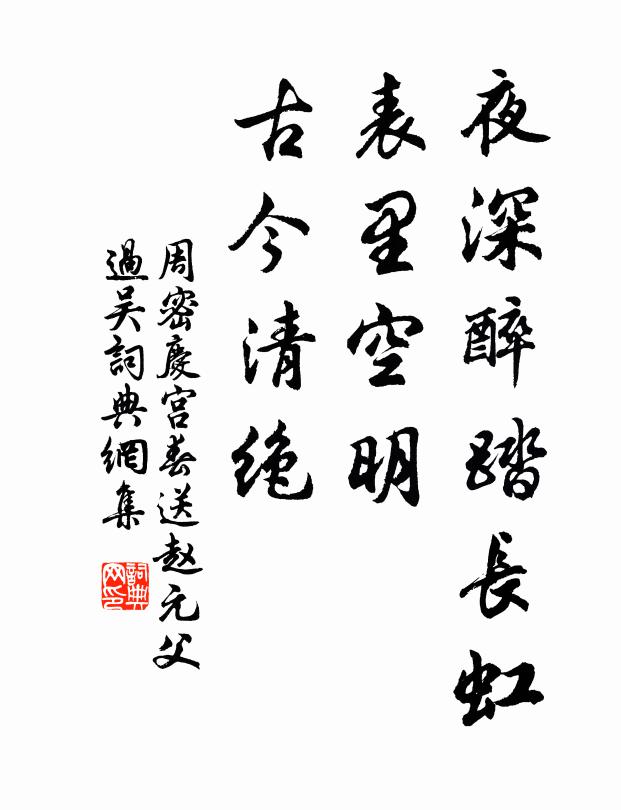 夜深醉踏長虹
表里空明
古今清绝
周密慶宫春送赵元父
過吴詞典網集
詞典
网印